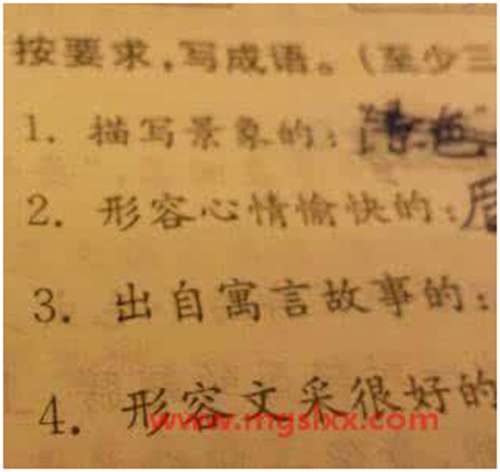 按要求，写成语。(至少三
1. 描写景象的：
2. 形容心情愉快的：
3. 出自寓言故事的：
4. 形容文采很好的
www.mgslxx.com